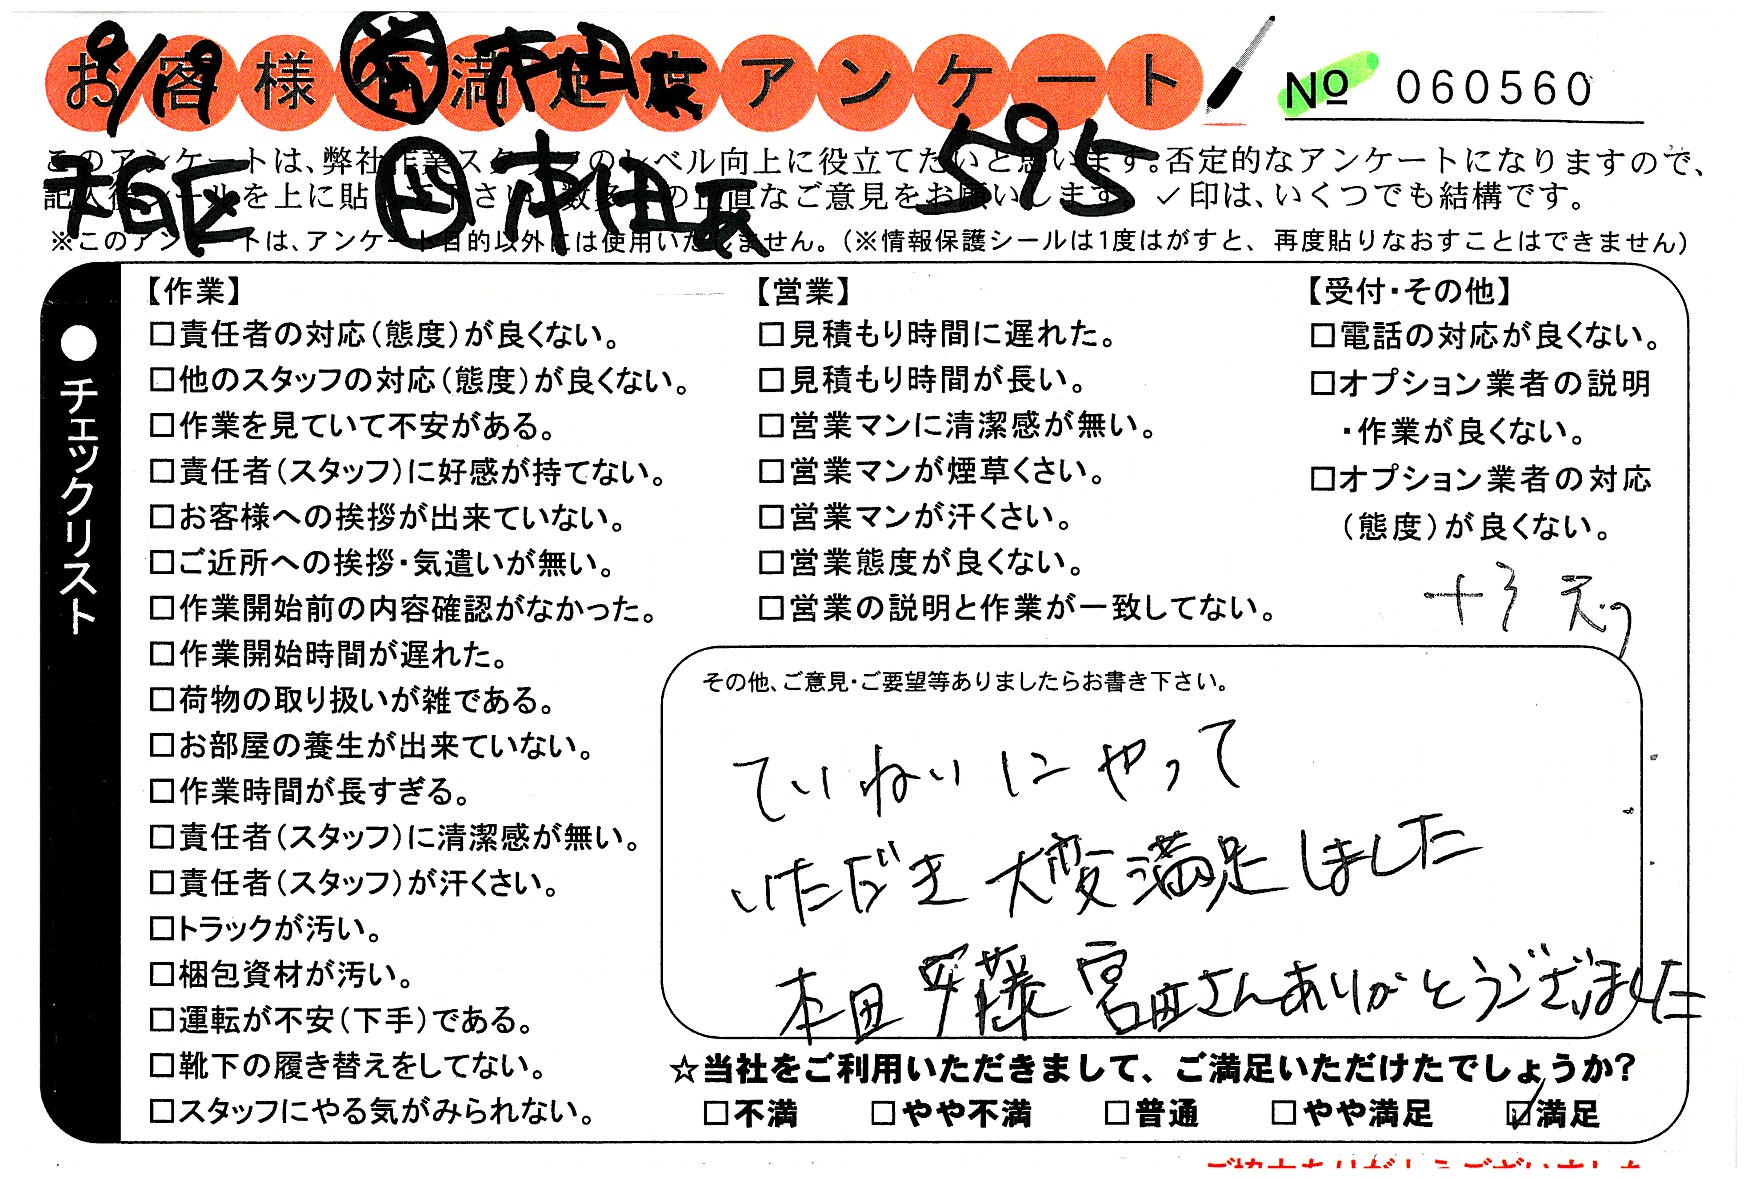 お客様不満足度アンケート
No 060560
このアンケートは、弊社作業スタッフのレベル向上に役立てたいと思います。否定的なアンケートになりますので、
記入後シールを上に貼って下さい。数多くの正直なご意見をお願いします。✓印は、いくつでも結構です。
※このアンケートは、アンケート目的以外には使用いたしません。(※情報保護シールは1度はがすと、再度貼りなおすことはできません)
9/19
市田
市田
595
●チェックリスト
【作業】
□責任者の対応(態度)が良くない。
□他のスタッフの対応(態度)が良くない。
□作業を見ていて不安がある。
□責任者(スタッフ)に好感が持てない。
□お客様への挨拶が出来ていない。
□ご近所への挨拶・気遣いが無い。
□作業開始前の内容確認がなかった。
□作業開始時間が遅れた。
□荷物の取り扱いが雑である。
□お部屋の養生が出来ていない。
□作業時間が長すぎる。
□責任者(スタッフ)に清潔感が無い。
□責任者(スタッフ)が汗くさい。
□トラックが汚い。
□梱包資材が汚い。
□運転が不安(下手)である。
□靴下の履き替えをしてない。
□スタッフにやる気がみられない。
【営業】
□見積もり時間に遅れた。
□見積もり時間が長い。
□営業マンに清潔感が無い。
□営業マンが煙草くさい。
□営業マンが汗くさい。
□営業態度が良くない。
□営業の説明と作業が一致してない。
【受付・その他】
□電話の対応が良くない。
□オプション業者の説明
・作業が良くない。
□オプション業者の対応
(態度)が良くない。
その他、ご意見・ご要望等ありましたらお書き下さい。
ていねいにやって
いただき大変満足しました
本田 斉藤 宮田さんありがとうございました
☆当社をご利用いただきまして、ご満足いただけたでしょうか?
□不満 □やや不満 □普通 □やや満足 ☑満足
ご協力ありがとうございました